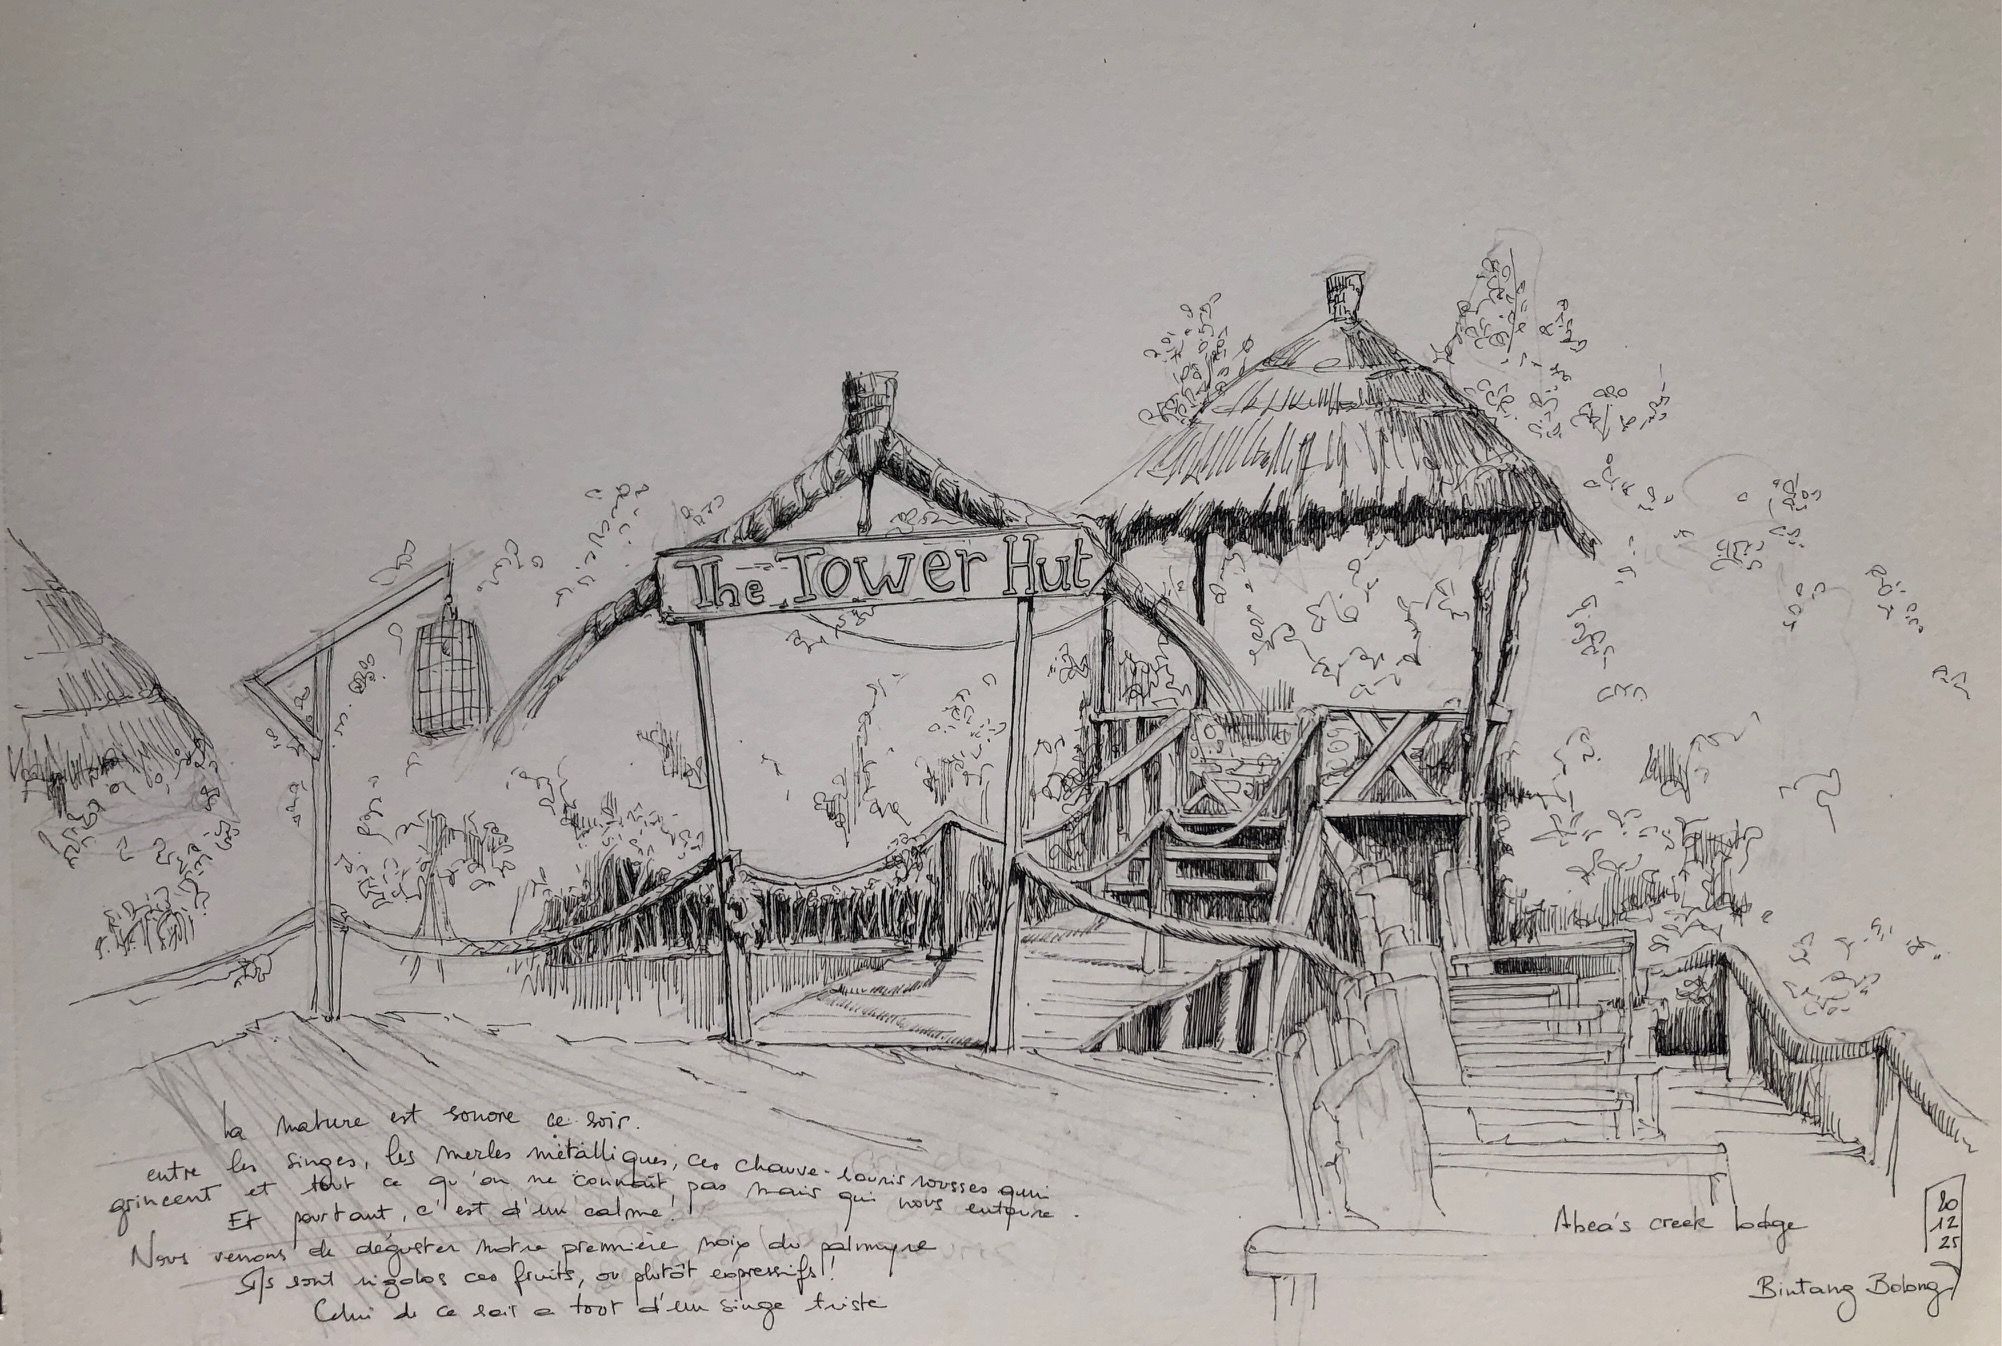 The Tower Hut
La nature est sonore ce soir.
entre les singes, les merles métalliques, ces chauve-souris rousses qui
grincent et tout ce qu'on ne connaît pas mais qui nous entoure.
Et pourtant, c'est d'un calme!
Nous venons de déguster notre première noix du palmyre
Ils sont rigolos ces fruits, ou plutôt expressifs!
Celui de ce soir a tout d'un singe triste
Abea's creek lodge
20
12
25
Bintang Bolong